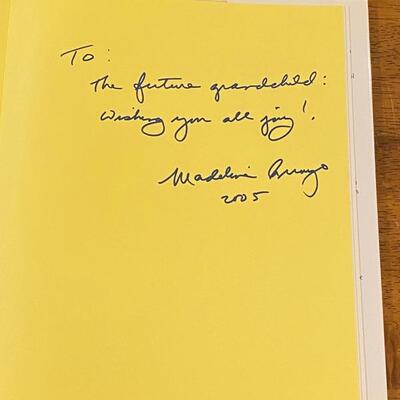 To:
The future grandchild:
Wishing you all joy!
Madeline Arroyo
2005